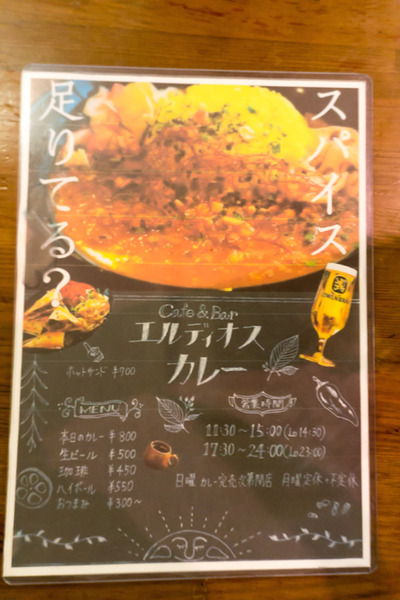 スパイス
足りてる?
Cafe & Bar
エルディオス
カレー
ホットサンド ¥700
MENU
本日のカレー ¥800
生ビール ¥500
珈琲 ¥450
ハイボール ¥550
おつまみ ¥300~
営業時間
11:30~15:00(Lo14:30)
17:30~24:00(Lo23:00)
日曜 カレー完売次第閉店 月曜定休+不定休